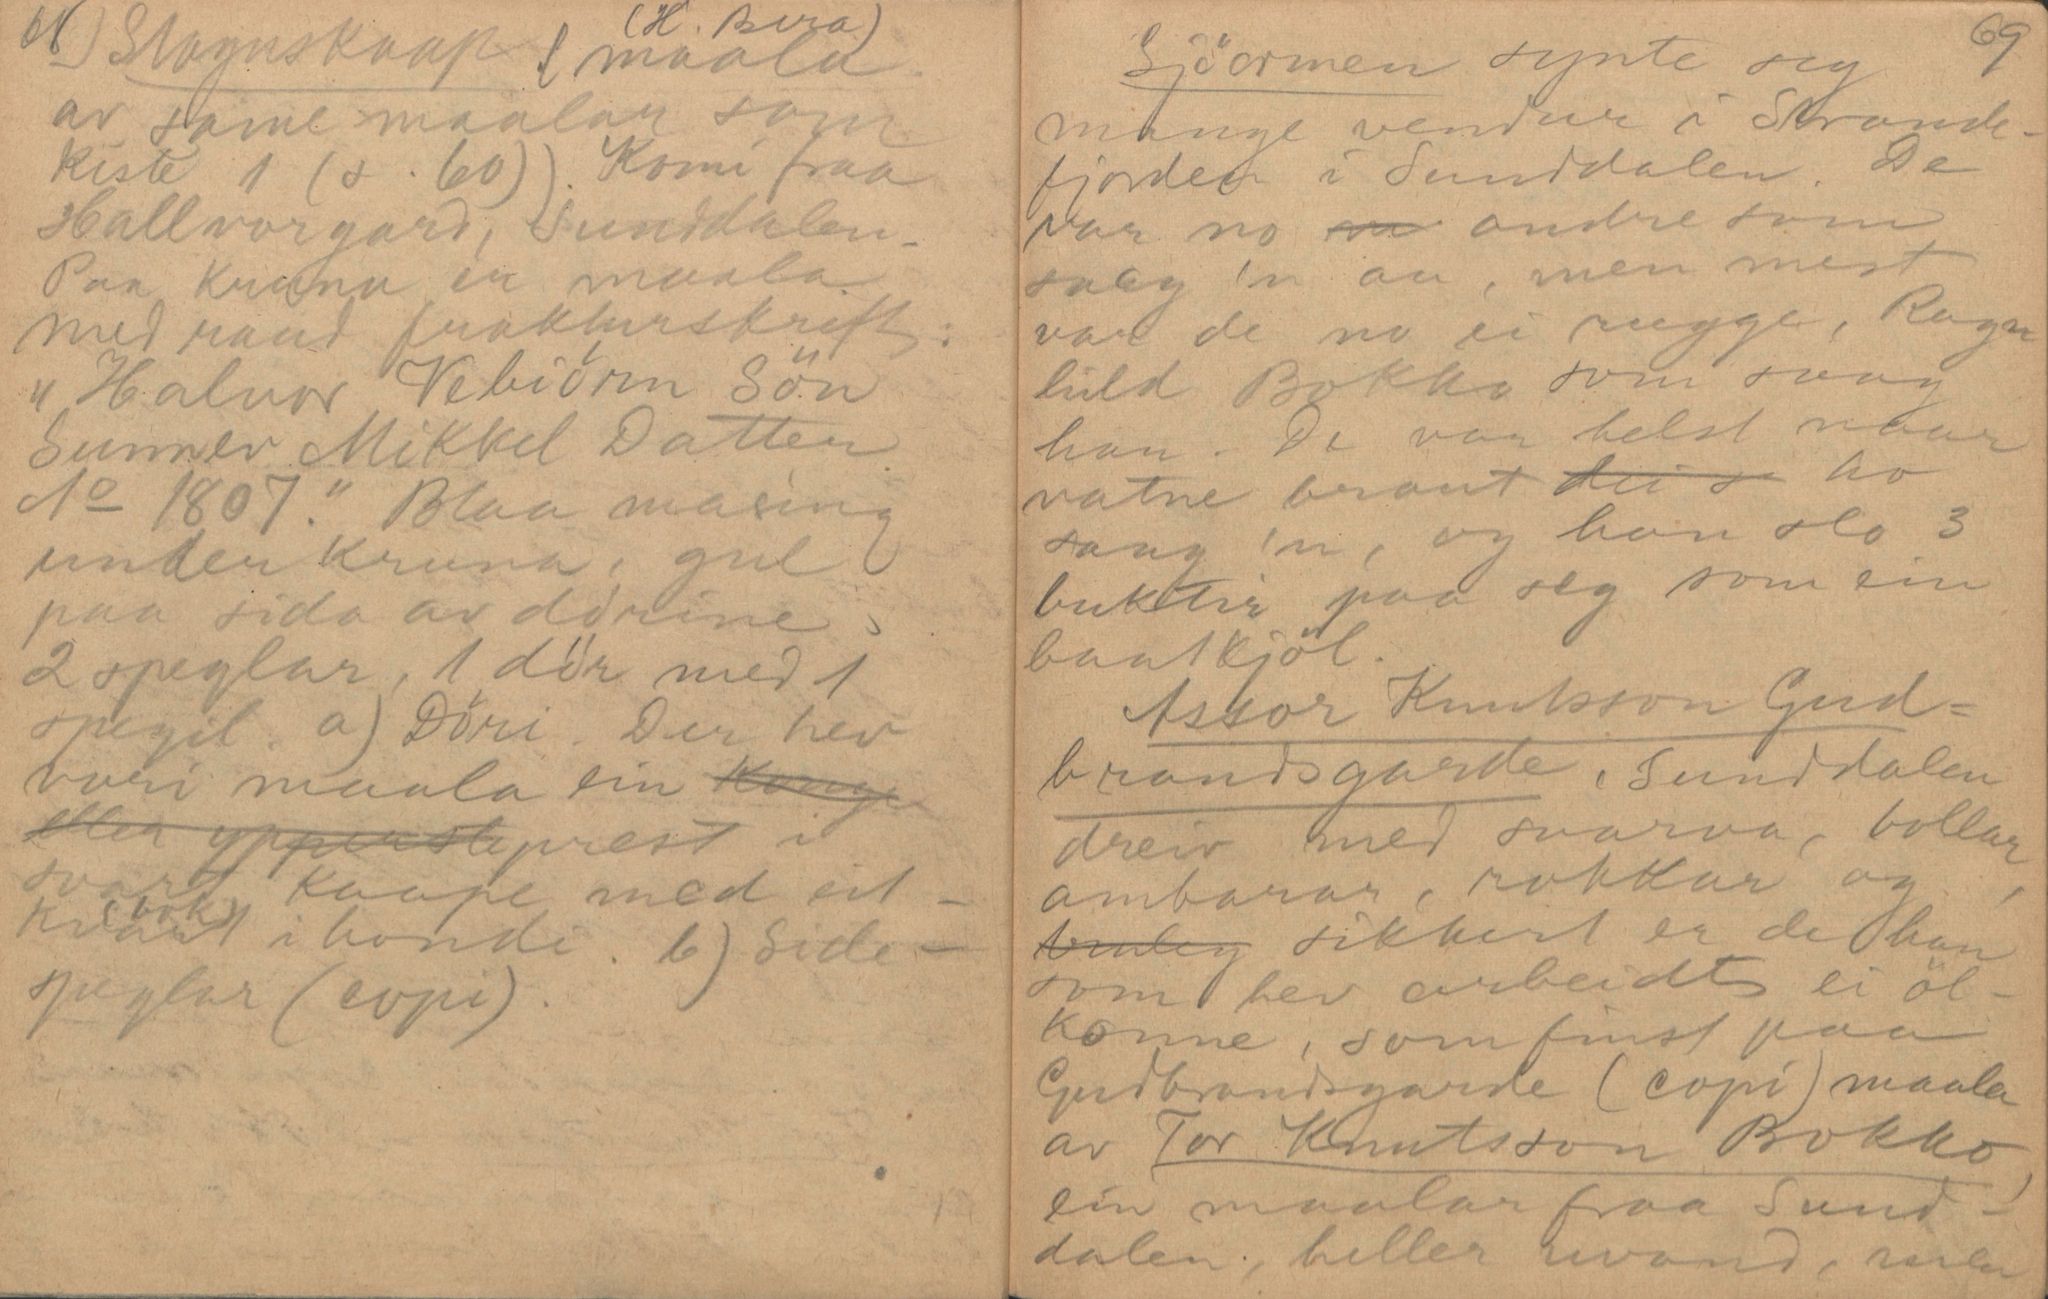 68) Slaguskaap (maala
(H. Bera)
av same maalar som
kiste 1 (s. 60)). Komi fraa
Hallvorgard, Sunddalen.
Paa kruna er maala
med raud frakturskrift:
"Halvor Vebiörn Sön
Sunnev Mikkel Datter
No 1807." Blaa masing
under kruna, gul
paa sida av dörine,
2 speglar, 1 dör med 1
spegil. a) Döri. Der hev
vori maala ein Konge
eller yppersteprest i
svart kaape med eit
kvart (bok) i hondi. b) Side-
speglar (copi).
69
Sjöormen synte seg
mange vendur i Strande-
fjorden i Sunddalen. De
var no andre som
saag 'n au, men mest
var de no ei rugge, Ragn
hild Bokko som saag
han. De var helst naar
vatne braut dei s ho
saag 'n, og han slo 3
buktir paa seg som ein
baatkjöl.
Assor Knutsson Gud-
brandsgarde, Sunddalen
dreiv med svarva, bollar,
ambarar, rokkar og
truleg sikkert er de han
som hev arbeidt ei öl-
konne, som finst paa
Gudbrandsgarde (copi) maala
av Tor Knutsson Bokko,
ein maalar fraa Sund-
dalen, heller uvand, men